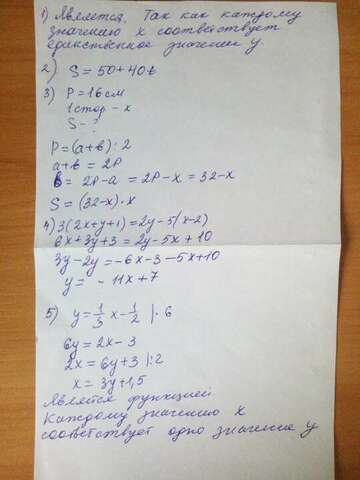 1) Является. Так как каждому
значению x соответствует
единственное значении y
2) S = 50 + 40t
3) P = 16 см
1 стор - x
S - ?
P = (a+в) : 2
a+в = 2P
в = 2P - a = 2P - x = 32 - x
S = (32-x)·x
4) 3(2x+y+1) = 2y - 5(x-2)
6x + 3y + 3 = 2y - 5x + 10
3y - 2y = -6x - 3 - 5x + 10
y = - 11x + 7
5) y = 1/3 x - 1/2 |· 6
6y = 2x - 3
2x = 6y + 3 |:2
x = 3y + 1,5
является функцией
Каждому значению x
соответствует одно значение y